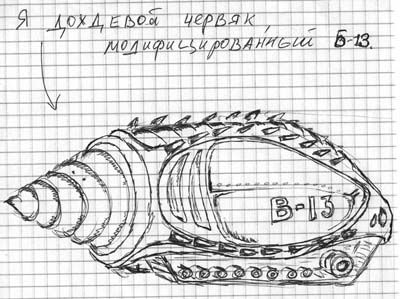 Я дождевой червяк,
модифицированный Б-13.
В-13